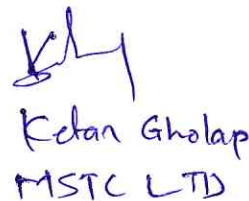 Ketan Gholap
MSTC LTD